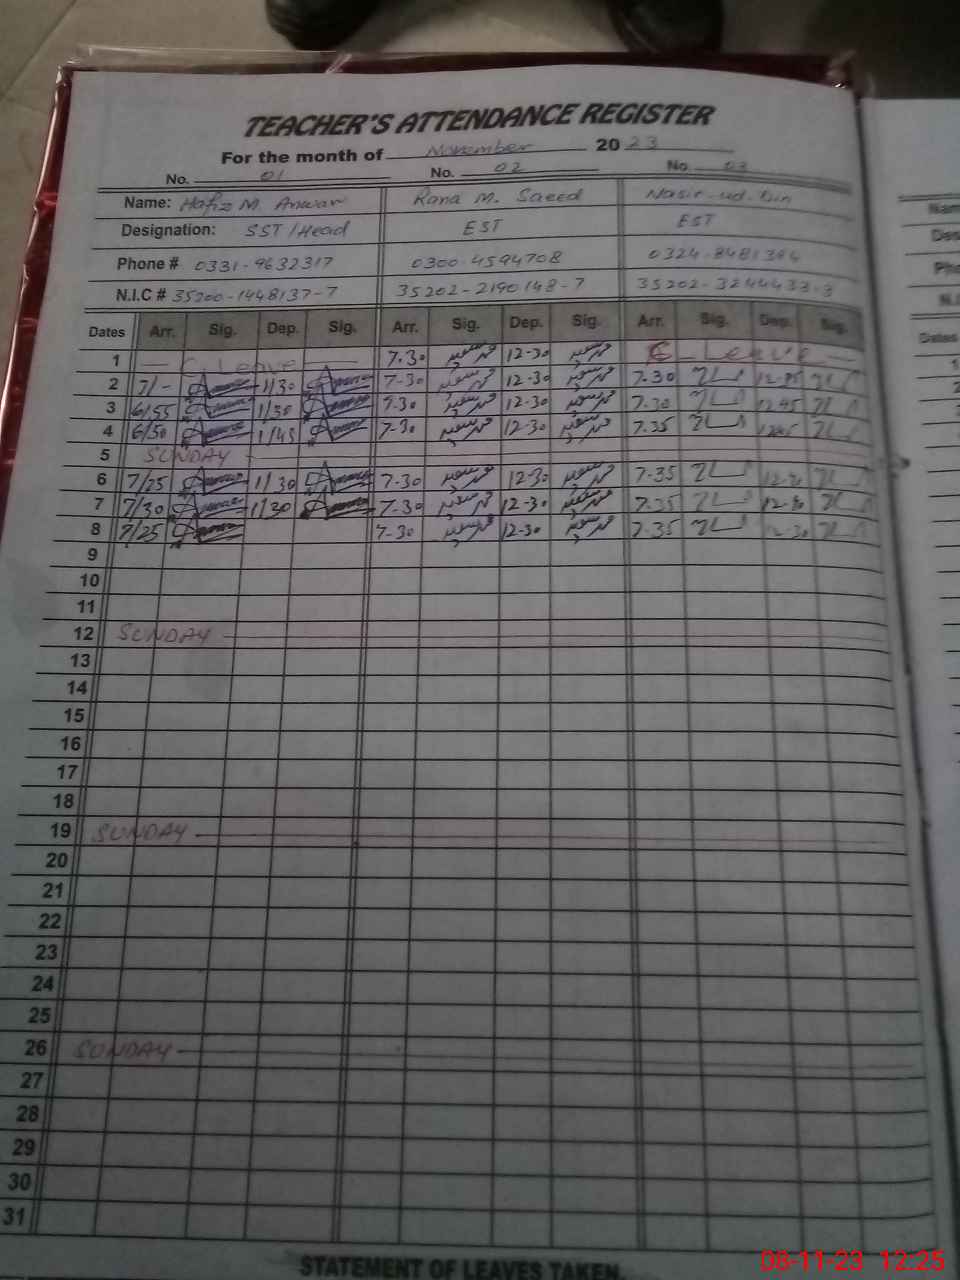 TEACHER'S ATTENDANCE REGISTER
For the month of November 2023
No. 01 No. 02 No. 03
Name: Hafiz M. Anwar Rana M. Saeed Nasir-ud-Din
Designation: SST/Head EST EST
Phone # 0331-9632317 0300-4594708 0324-8481384
N.I.C # 35200-1448137-7 35202-2190148-7 35202-3244433-3
Dates Arr. Sig. Dep. Sig. Arr. Sig. Dep. Sig. Arr. Sig. Dep. Sig.
1 C Leave 7.30 12-30 C Leave
2 7/- 1/30 7-30 12-30 7.30
3 6/55 1/30 7-30 12-30 7-30 12-45
4 6/50 1/45 7-30 12-30 7.35
5 SUNDAY
6 7/25 1/30 7-30 12-30 7-35
7 7/30 1/30 7-30 12-30 7.35 12-30
8 7/25 7-30 12-30 7-35 12-30
9
10
11
12 SUNDAY
13
14
15
16
17
18
19 SUNDAY
20
21
22
23
24
25
26 SUNDAY
27
28
29
30
31
STATEMENT OF LEAVES TAKEN.
08-11-23 12:25